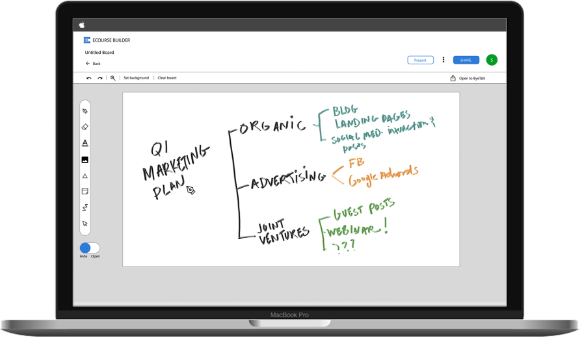 ECOURSE BUILDER
Untitled Board
Back
Present
S
Set background
Clear board
Q1
MARKETING
PLAN
ORGANIC
BLOG
LANDING PAGES
SOCIAL MED
ADVERTISING
FB
Google Adwords
JOINT
VENTURES
GUEST POSTS
WEBINAR!
???
Hide
Open
MacBook Pro